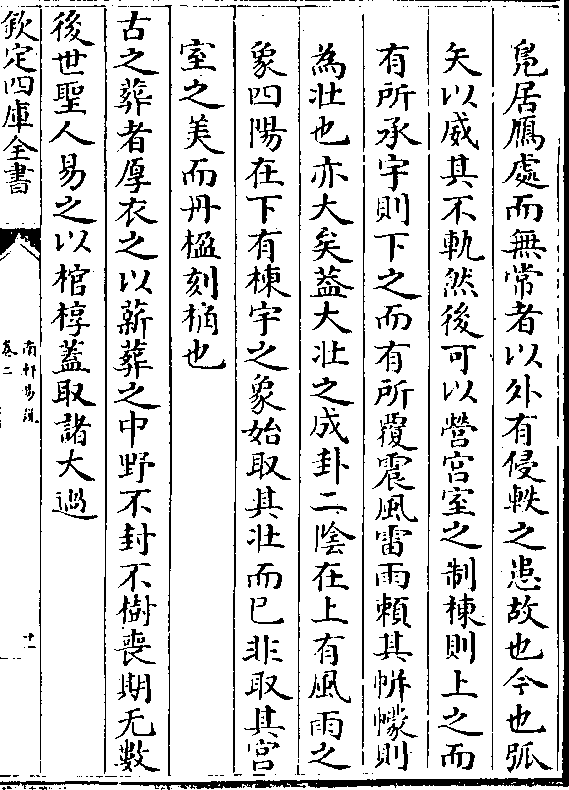 鳬居鴈處而無常者以外有侵軼之患故也今也弧
矢以威其不軌然後可以營宫室之制棟則上之而
有所承宇則下之而有所覆震風雷雨頼其帡幪則
為壯也亦大矣葢大壯之成卦二隂在上有風雨之
象四陽在下有棟宇之象始取其壯而已非取其宫
室之美而丹楹刻桷也
古之葬者厚衣之以薪葬之中野不封不樹喪期无數
後世聖人易之以棺椁蓋取諸大過
欽定四庫全書
南軒易說
卷二
十一